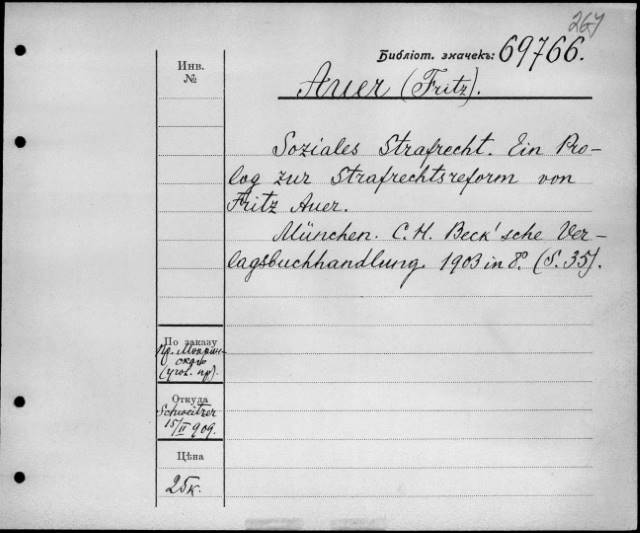 267
Библіот. значекъ: 69766.
Инв.
№
Auer (Fritz).
Soziales Strafrecht. Ein Pro-
log zur Strafrechtsreform von
Fritz Auer.
München. C. H. Beck'sche Ver-
lagsbuchhandlung. 1903 in 8º. (S. 35).
По заказу
Пр. Мокрин-
скаго
(угол. пр).
Откуда
Schweitzer
15/II 909.
Цѣна
25к.